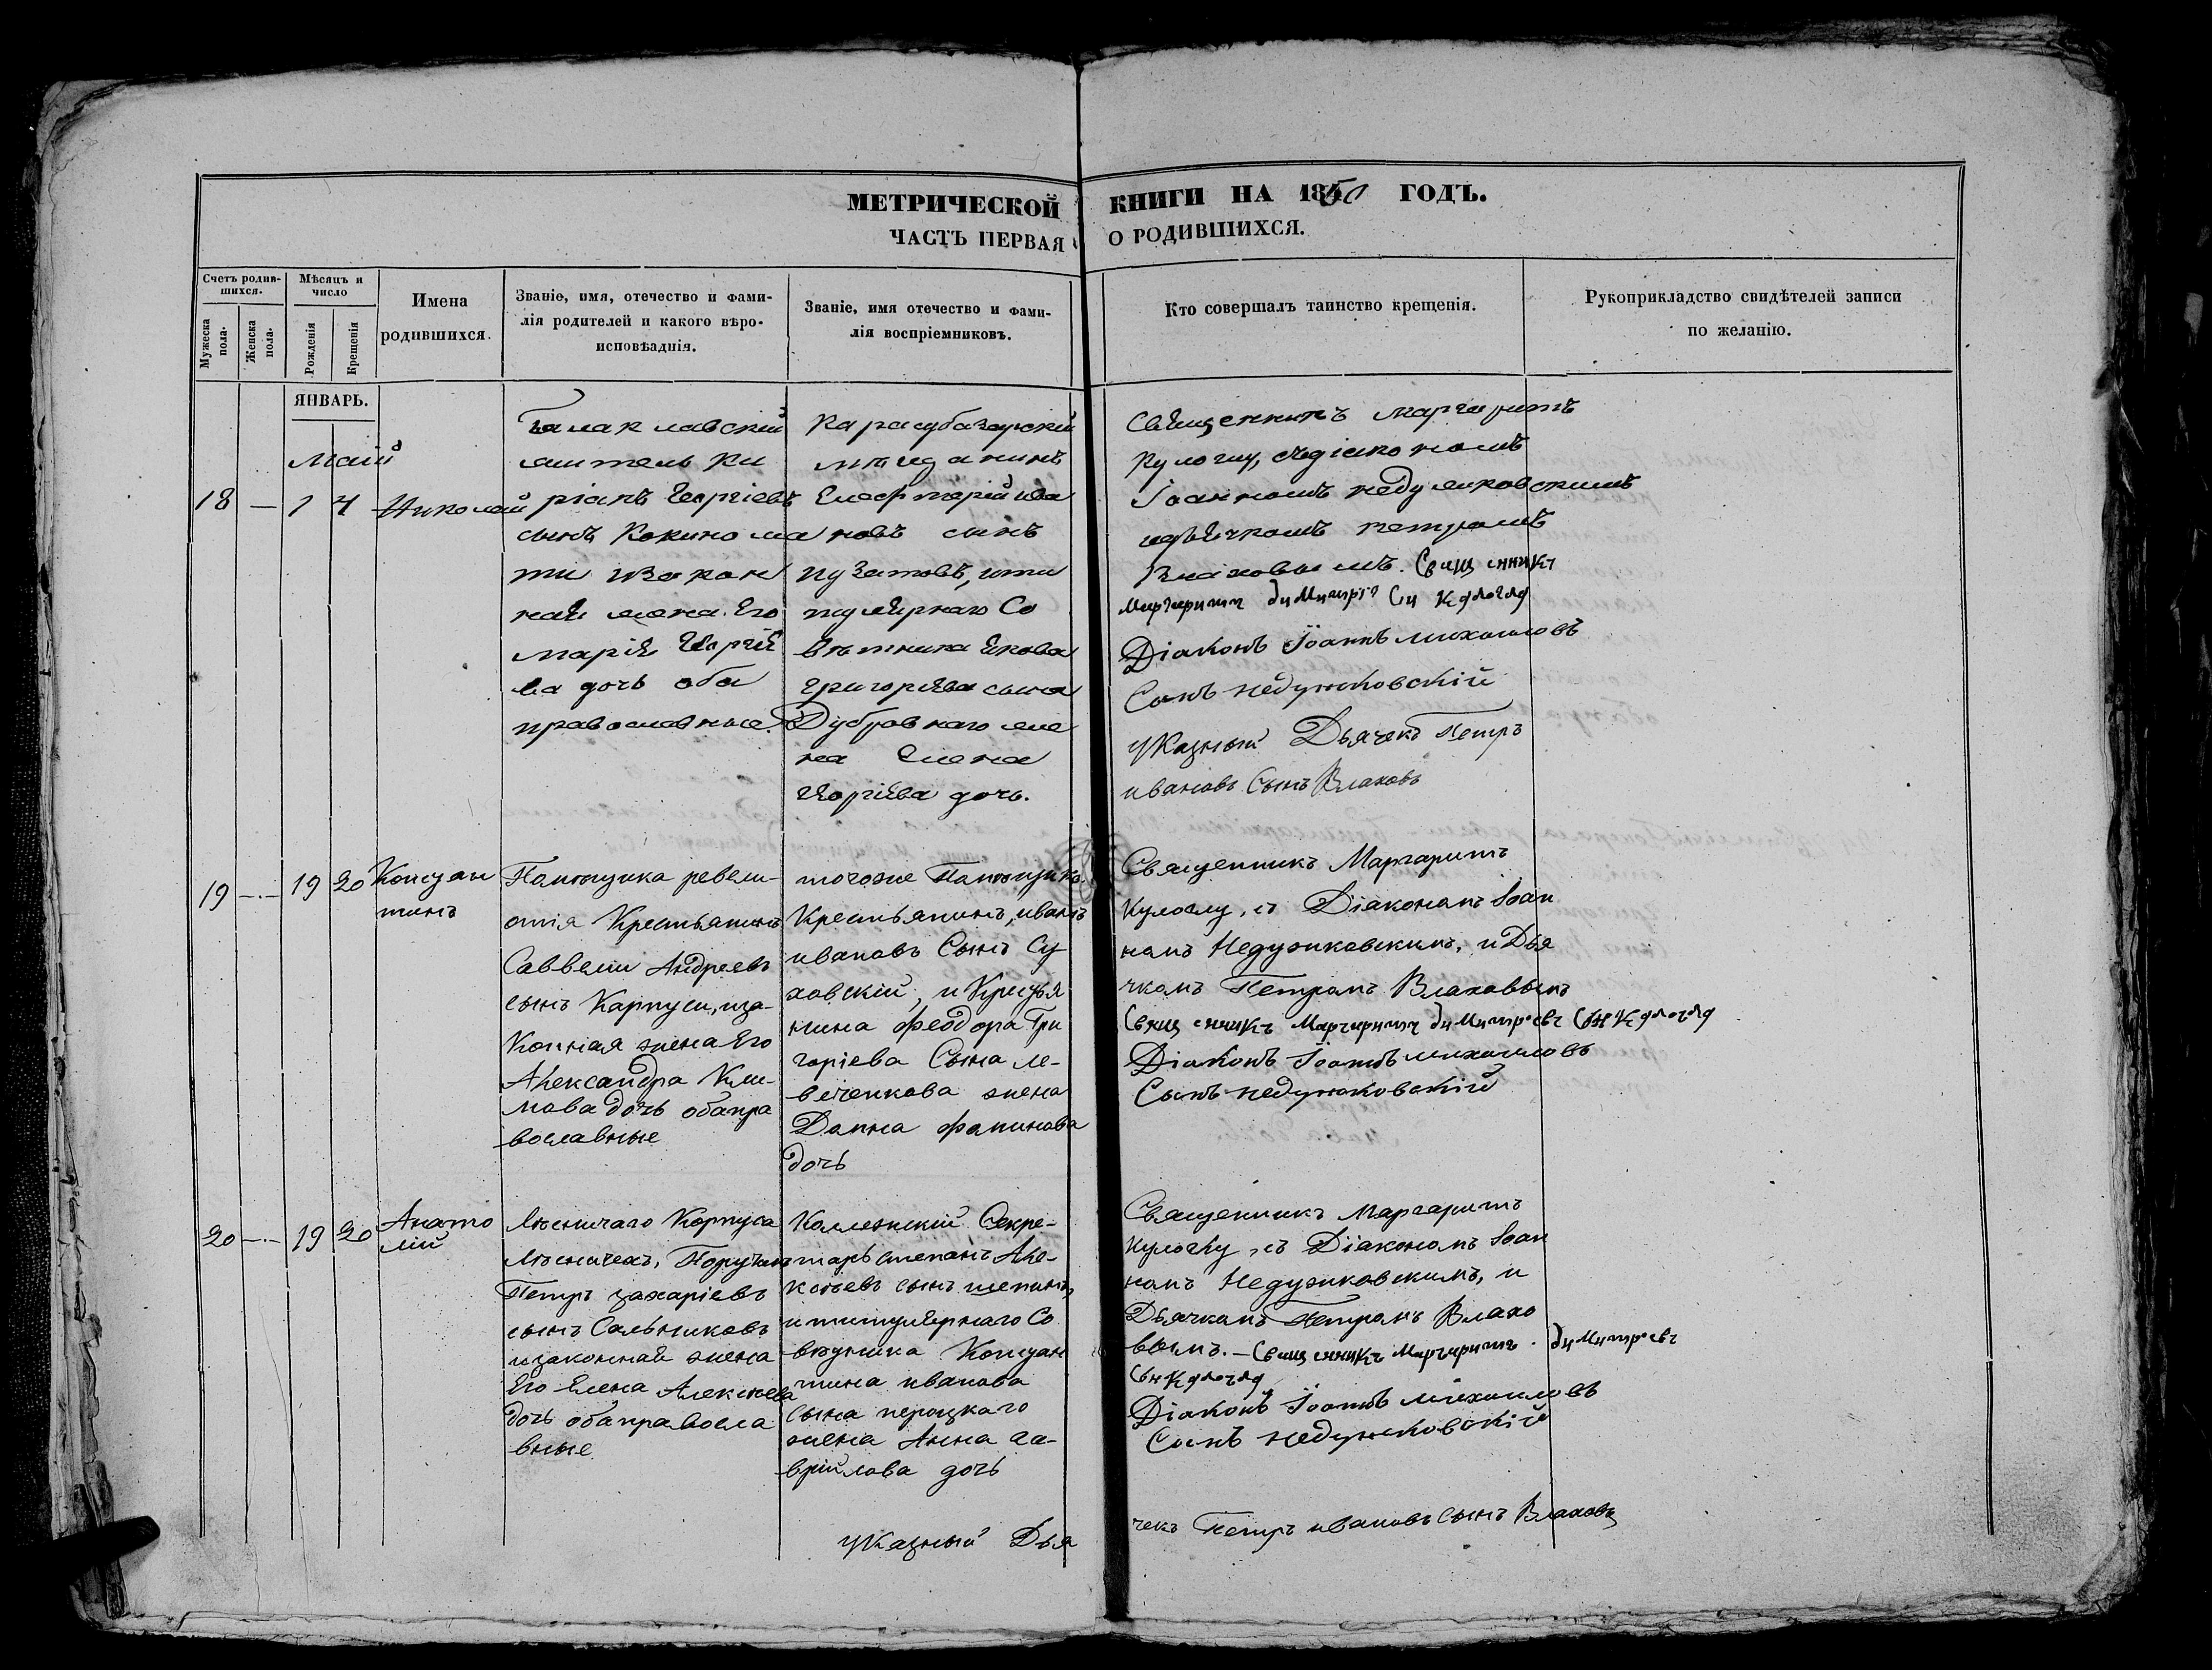 МЕТРИЧЕСКОЙ КНИГИ НА 1850 ГОДЪ.
ЧАСТЬ ПЕРВАЯ О РОДИВШИХСЯ.
Счетъ родив-
шихся.
Мужеска
пола.
Женска
пола.
Мѣсяцъ и
число
Рожденія
Крещенія
Имена
родившихся.
Званіе, имя, отечество и фами-
лія родителей и какого вѣро-
исповѣаднія.
Званіе, имя отечество и фами-
лія воспріемниковъ.
Кто совершалъ таинство крещенія.
Рукоприкладство свидѣтелей записи
по желанію.
ЯНВАРЬ.
Маій
18 — 1 4 Николай
Балаклавскій
житель Ки
ріакъ Георгіевъ
сынъ Кокинома
ти изакон
ная жена Его
марія Георгіе
ва дочь оба
православные.
Карасубазарскій
мѣщанинъ
Елефтерій ива
новъ сынъ
пузатовъ, ити
тулярнаго Со
вѣтника Якова
григорьева сына
Дубровнаго же
на Елена
Георгіева дочь.
Священникъ маргаритъ
Кулоглу, съдіакономъ
Іоанномъ недужковскимъ
идьячкомъ петромъ
Влаховымъ. Священникъ
Маргаритъ димитріевъ Сы Кулоглу
Діаконъ Іоаннъ михаиловъ
Сынъ недужковскій
Указный Дьячекъ Петръ
ивановъ Сынъ Влаховъ
19 — 19 20 Констан
тинъ
ревели-
отія Крестьянинъ
Андреевъ
сынъ Карпуси, иза-
Конная жена Его
Александра Кли-
мова дочь оба пра
вославные
тогоже
Крестьянинъ, иванъ
ивановъ Сынъ Су-
ховскій, и Крестья
нина Феодора Гри
горіева Сына ле-
вченкова жена
Домна фоминова
дочь
Священникъ Маргаритъ
Кулоглу, съ Діакономъ Іоан
номъ Недужковскимъ, и Дья
чкомъ Петромъ Влаховымъ
Священникъ Маргаритъ димитріевъ Сынъ Кулоглу
Діаконъ Іоаннъ михаиловъ
Сынъ недужковскій
20 — 19 20 Анато
лій
Лѣсничаго Корпуса
Лѣсничей, Поручикъ
Петръ захаріевъ
сынъ Сальниковъ
изаконная жена
Его Елена Алексѣева
дочь оба правосла
вные
Колежскій Секре-
тарь степанъ Але-
ксѣевъ сынъ шепинъ,
ититулярнаго Со
вѣтника Констан
тина иванова
Сына
жена Анна га-
вріилова дочь
Священникъ Маргаритъ
Кулоглу, съ Діакономъ Іоан
номъ Недужковскимъ, и
Дьячкомъ Петромъ Влахо
вымъ. — Священникъ Маргаритъ димитріевъ
Сынъ Кулоглу
Діаконъ Іоаннъ михаиловъ
Сынъ недужковскій
Указный Дья
чекъ Петръ ивановъ сынъ Влаховъ